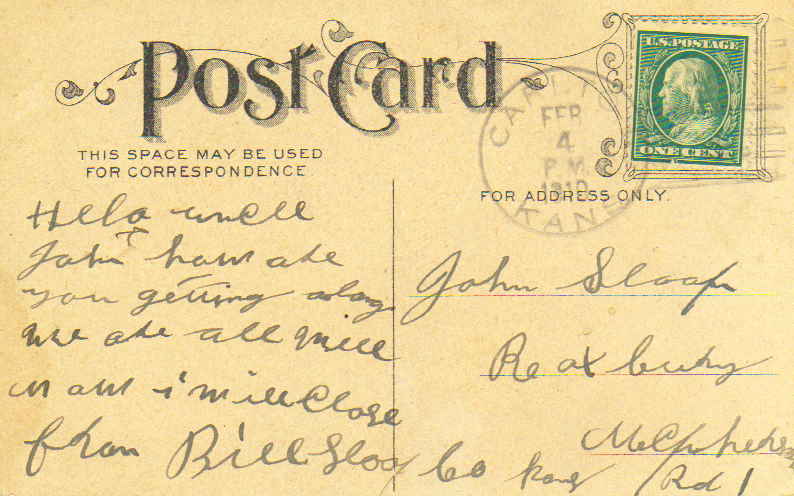 Post Card
THIS SPACE MAY BE USED
FOR CORRESPONDENCE
FOR ADDRESS ONLY.
U.S. POSTAGE
ONE CENT
FEB
4
P.M.
1910
KANS
Hello uncle
John how are
you getting along
we are all well
now i will Close
from Bill Sloop
John Sloop
Roxbury
Co Kans
Rd 1